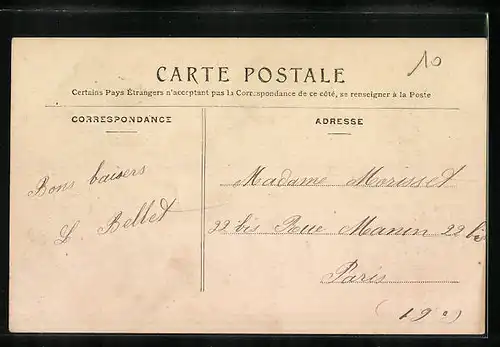 10
CARTE POSTALE
Certains Pays Étrangers n'acceptant pas la Correspondance de ce côté, se renseigner à la Poste
CORRESPONDANCE
ADRESSE
Bons baisers
L. Bellet
Madame Morisset
22 bis Rue Manin 22 bis
Paris
(19e)